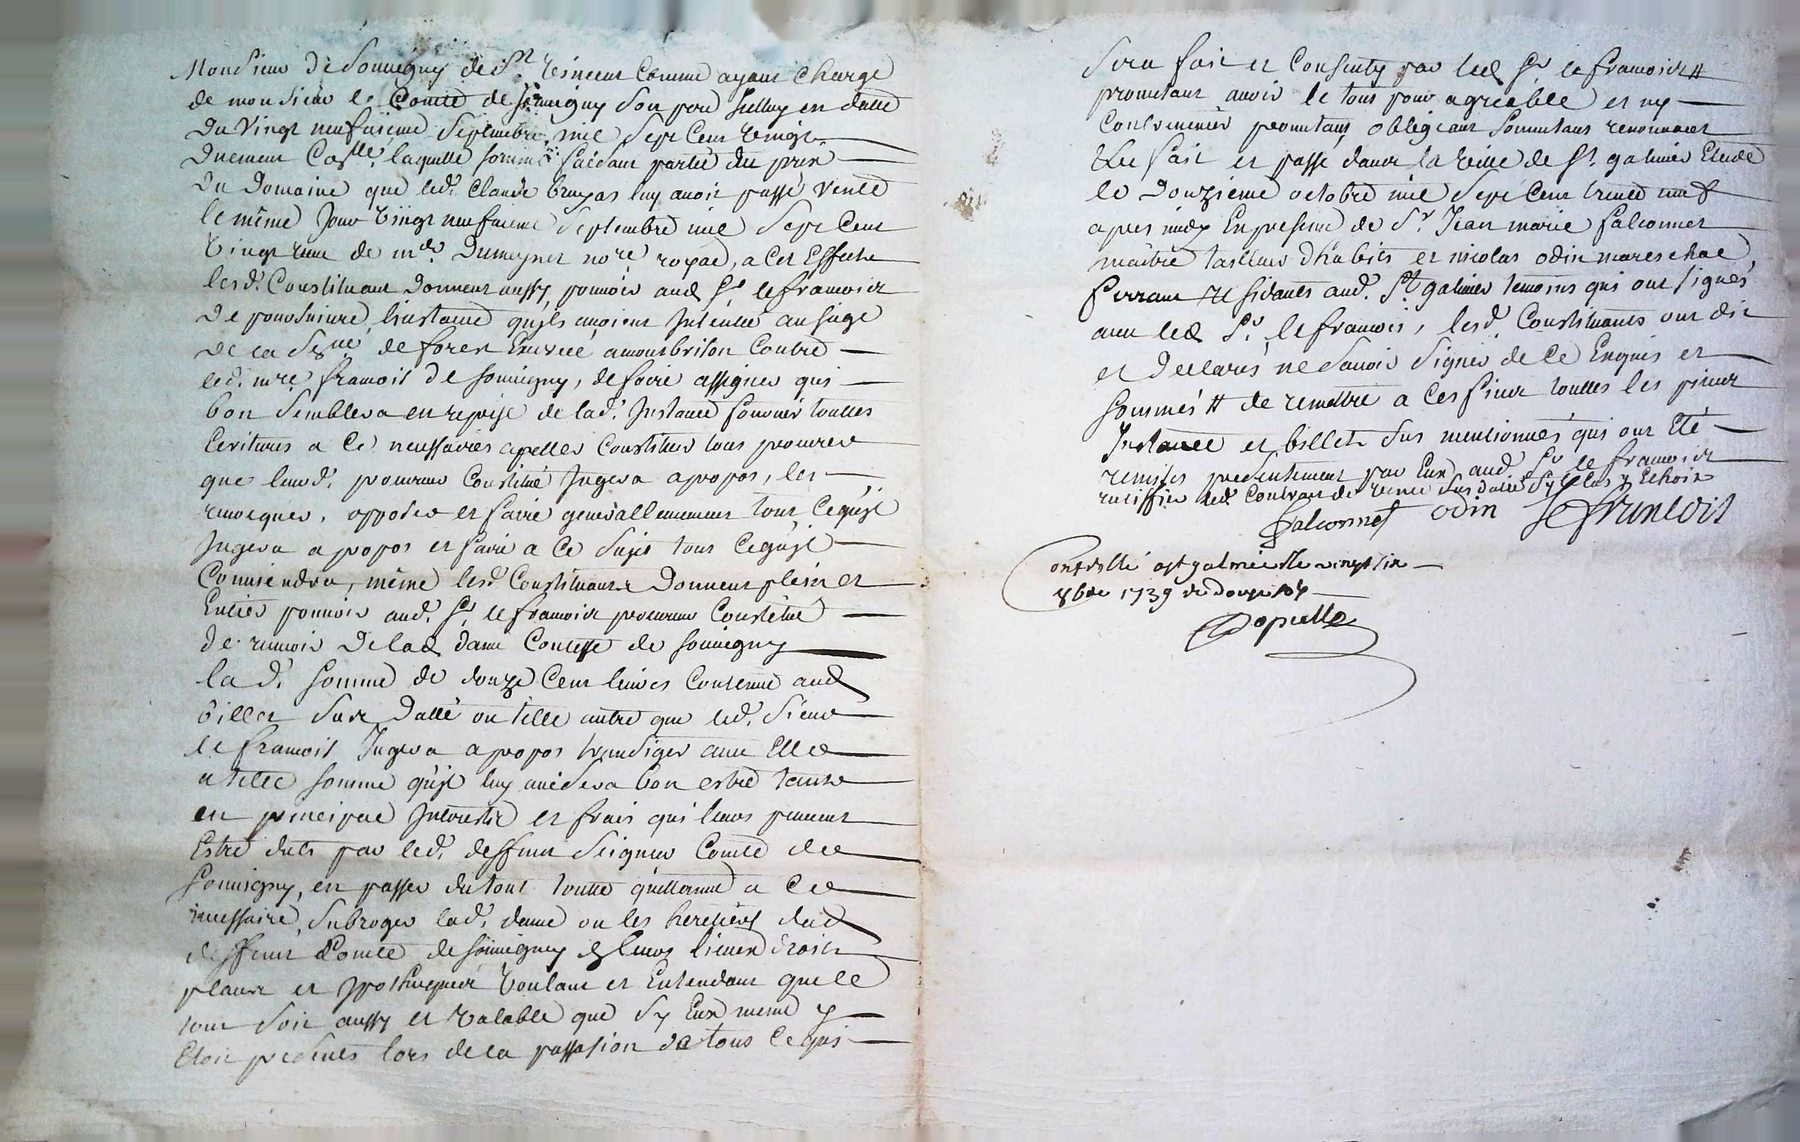 Monsieur de Souvigny de St. Vincent Comme ayant Charge
de monsieur le Comte de souvigny Son pere en datte
Du Vingt neufuieme Septembre mil Sept Cent Vingt
Duement laquelle somme faisant partie du prix
Du Domaine que led. Claude bruyas luy avoit passé vente
le même Jour Vingt neufuieme Septembre mil Sept Cent
Vingt de me. Dumaynet nore. royal, a Cet Effect
lesd. Constituant donnent aussy pouvoir aud. Sr. le francois
De poursuivre L'instance qu'ils avoient Intentée au siege
de la de forez a montbrison Contre
led. mre. francois de souvigny, de faire assigner qui
bon Semblera en reprise de lad. Instance fournir touttes
Ecritures a Ce necessaires apeller Constituer tous procureur
que leurd. procureur Constitué Jugera a propos, les
revoequer, opposer et faire generallemement tout Cequ'jl
Jugera a propos et faire a Ce Sujet tout Cequ'jl
Conviendra, même lesd. Constituants Donnent plein et
Entier pouvoir aud. Sr. le francois procureur Constitué
de recevoir De lad. dame Comtesse de souvigny
la d. somme de douze Cent livres Contenue aud.
billet Sus Datté ou telle autre que led. Sieur
le francois Jugera a propos transiger avec Elle
a telle somme qu'jl luy avisera bon estre tant
en principal Interests et frais qui leurs peuvent
Estre duts par led. deffunt Seigneur Comte de
souvigny, en passer du tout toutte quittance a Ce
necessaire, Subroger lad. dame ou les heretiers dud.
deffunt Comte de souvigny & leurs lieux droits
place et Jpothieque Voulant et Entendant que le
tout Soit aussy et Valable que Sy Eux meme y
Etoit presents lors de la passation de tous Ce qui
Sera fait et Consenty par led. Sr. le francois #
promettant avoir le tout pour agreable et ny
Contrevenir promettant obligeant Soumettant renonceant
fait et passé dans la Ville de St. galmier Etude
le Douzieme octobre mil Sept Cent trente neuf
apres midy En presence de Sr. Jean marie falconnet
maitre tailleur d'habits et nicolas odin mareschal
ferrant residants aud. St. galmier temoins qui ont signés
avec led. Sr. le francois, lesd. Constituants ont dit
et Declarés ne Savoir Signer de Ce Enquis et
sommés # de remettre a Ces fins touttes les pieces
Instance et billets Sus mentionnés qui ont Eté
remises presentement par Eux aud. Sr. le francois
ratiffier led. Contract de vente Sus datté Sy le Cas y Echoit
falconnet odin Le francois
Controllé a st galmier le vingt six
8bre 1739